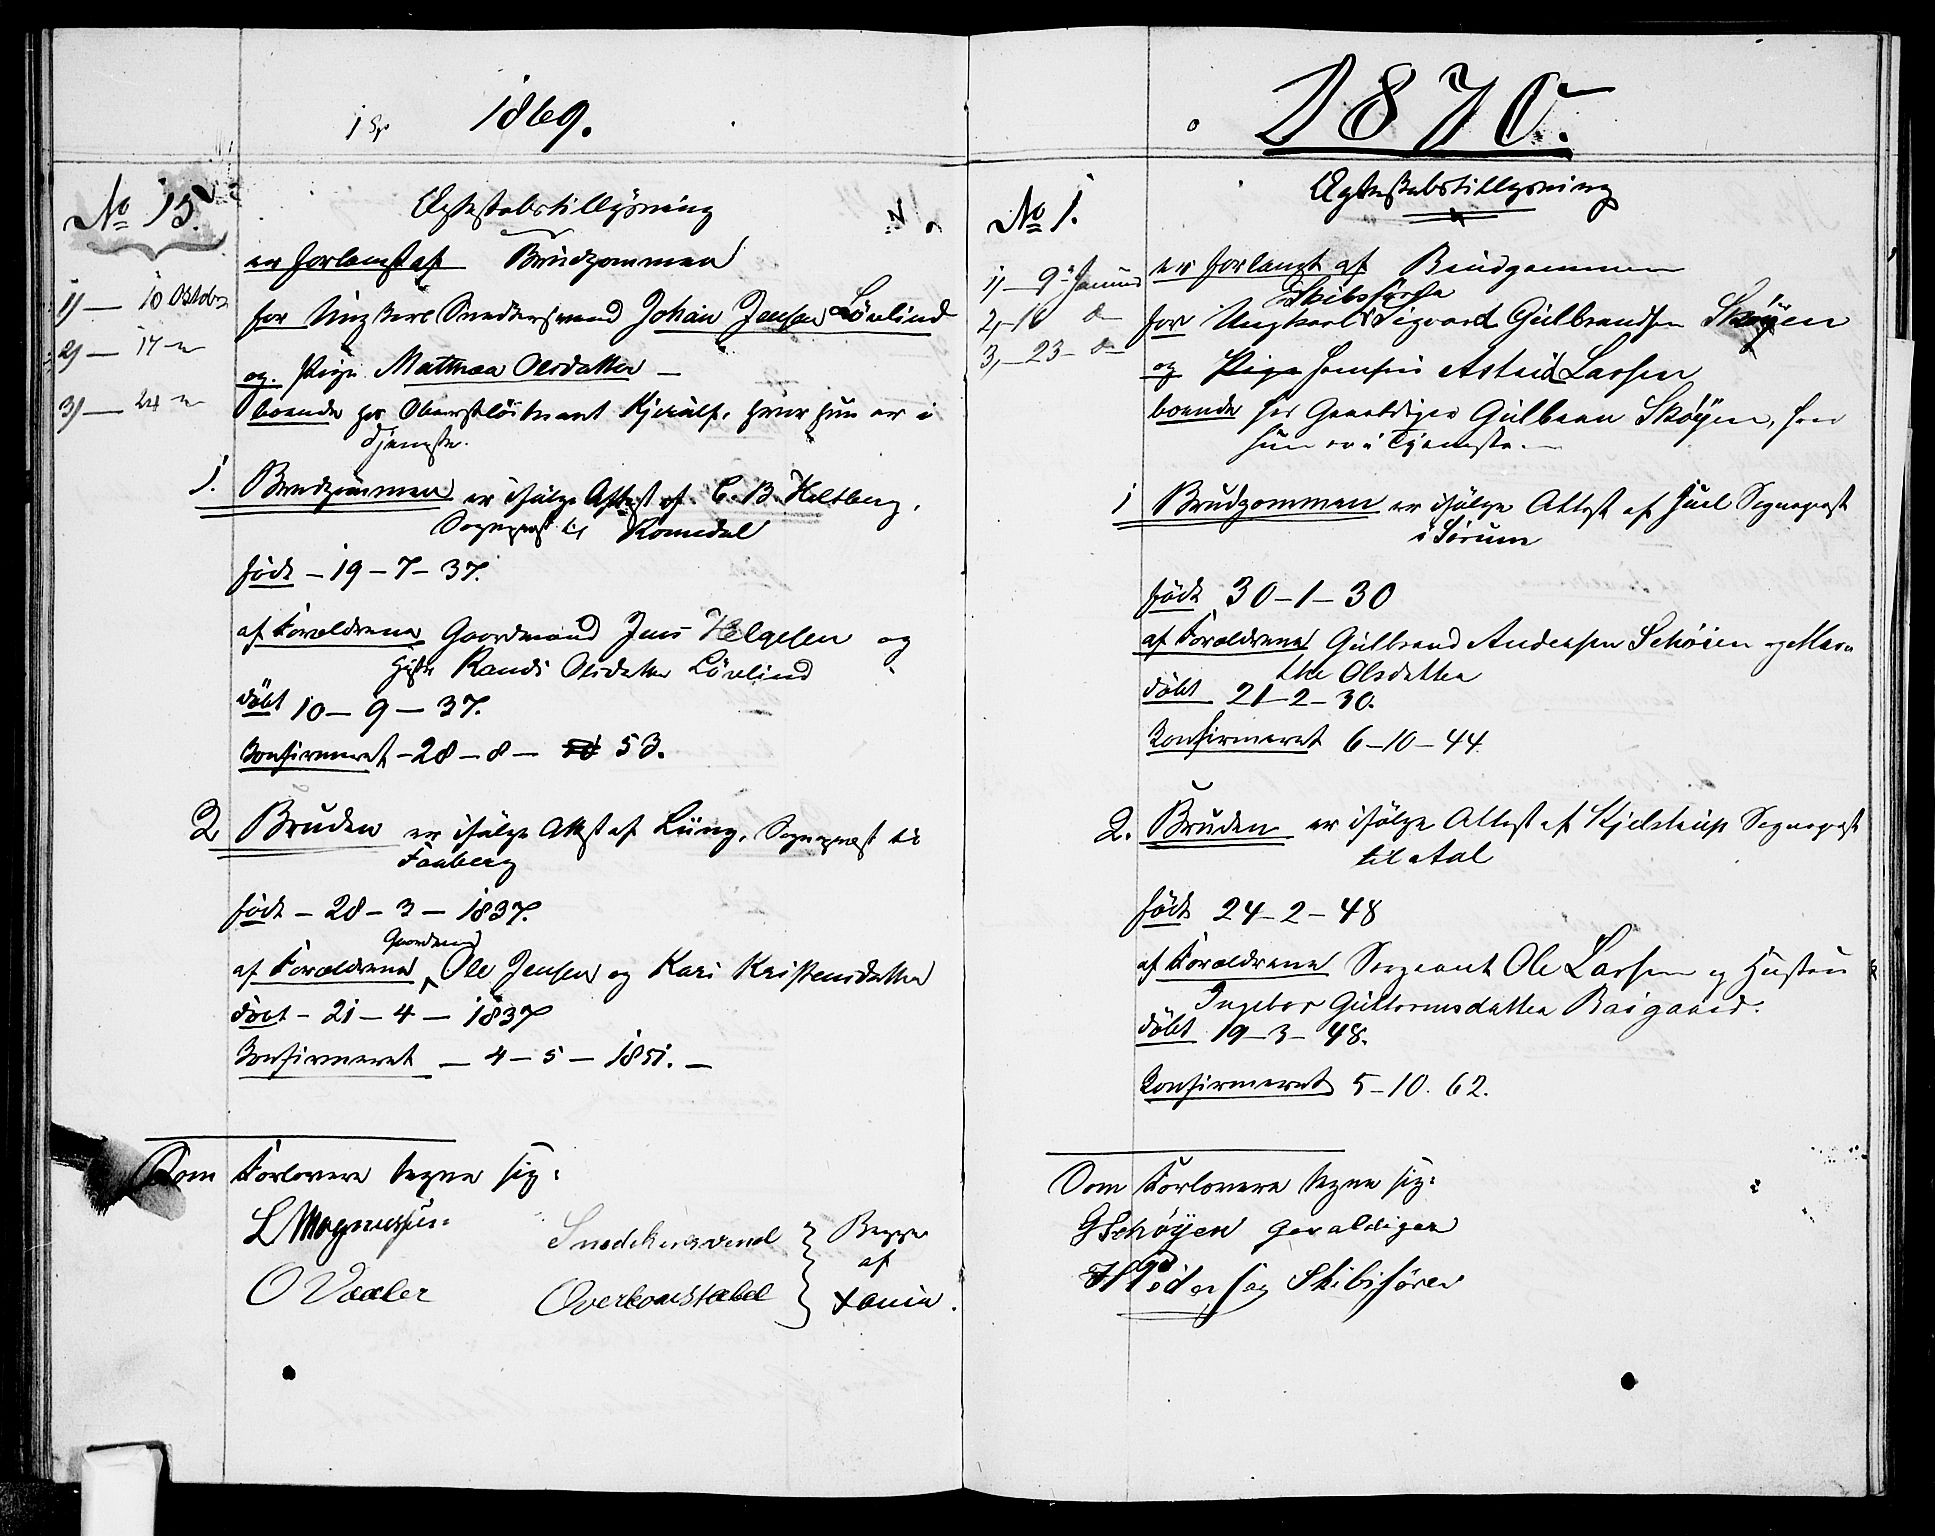 1869.
No 15.
Ægteskabstillysning
er forlangt af Brudgommen
1) — 10 Oktobr
for Ungkarl Snedkersvend Johan Jensen Lövlind
2) — 17 —
og Pige Mathea Olsdatter —
3) — 24 —
boende hos Oberstlöitnant Kjerulf, hvor hun er i
Tjeneste.
1. Brudgommen er ifølge Attest af C. B. Heltberg,
Sogneprest til Romedal
födt — 19 — 7 — 37.
af Forældrene Gaardmand Jens Helgesen og
Hustr Randi Olsdatter Lövlind
döbt 10 — 9 — 37.
Konfirmeret — 28 — 8 — 53.
2 Bruden er ifølge Attest af Lüng, Sogneprest til
Faaberg
födt — 28 — 3 — 1837.
Gaardmand
af Forældrene Ole Jensen og Kari Kristensdatter
döbt — 21 — 4 — 1837
Konfirmeret — 4 — 5 — 1851. —
Som Forlovere tegne sig:
L Magnussen Snedkersvend
Begge
af
O Vaaler Overkonstabel
Xania.
1870.
No 1.
Ægteskabstillysning
er forlangt af Brudgommen
1) — 9de Januar
Skibsfører
2, — 16 do
for Ungkarl Sigvard Gulbrandsen Skøyen
3, — 23 — do
og Pige Jomfru Astrid Larsen
boende hos Gevaldiger Gulbran Skøyen, hvor
hun er i Tjeneste. —
1 Brudgommen er ifølge Attest af Juel Sogneprest
i Sørum
födt 30 — 1 — 30
af Forældrene Gulbrand Andersen Schøien og Mar
the Olsdatter
döbt 21 — 2 — 30.
Konfirmeret 6 — 10 — 44.
2. Bruden er ifølge Attest af Kjelstrup Sogneprest
til Aal
födt 24 — 2 — 48
af Forældrene Sergeant Ole Larsen og Hustru
Ingebor Guttormsdatter Baigaard.
döbt 19 — 3 — 48.
Konfirmeret 5 — 10. 62.
Som Forlovere tegne sig:
G Schøyen Gevaldiger
Skibsfører